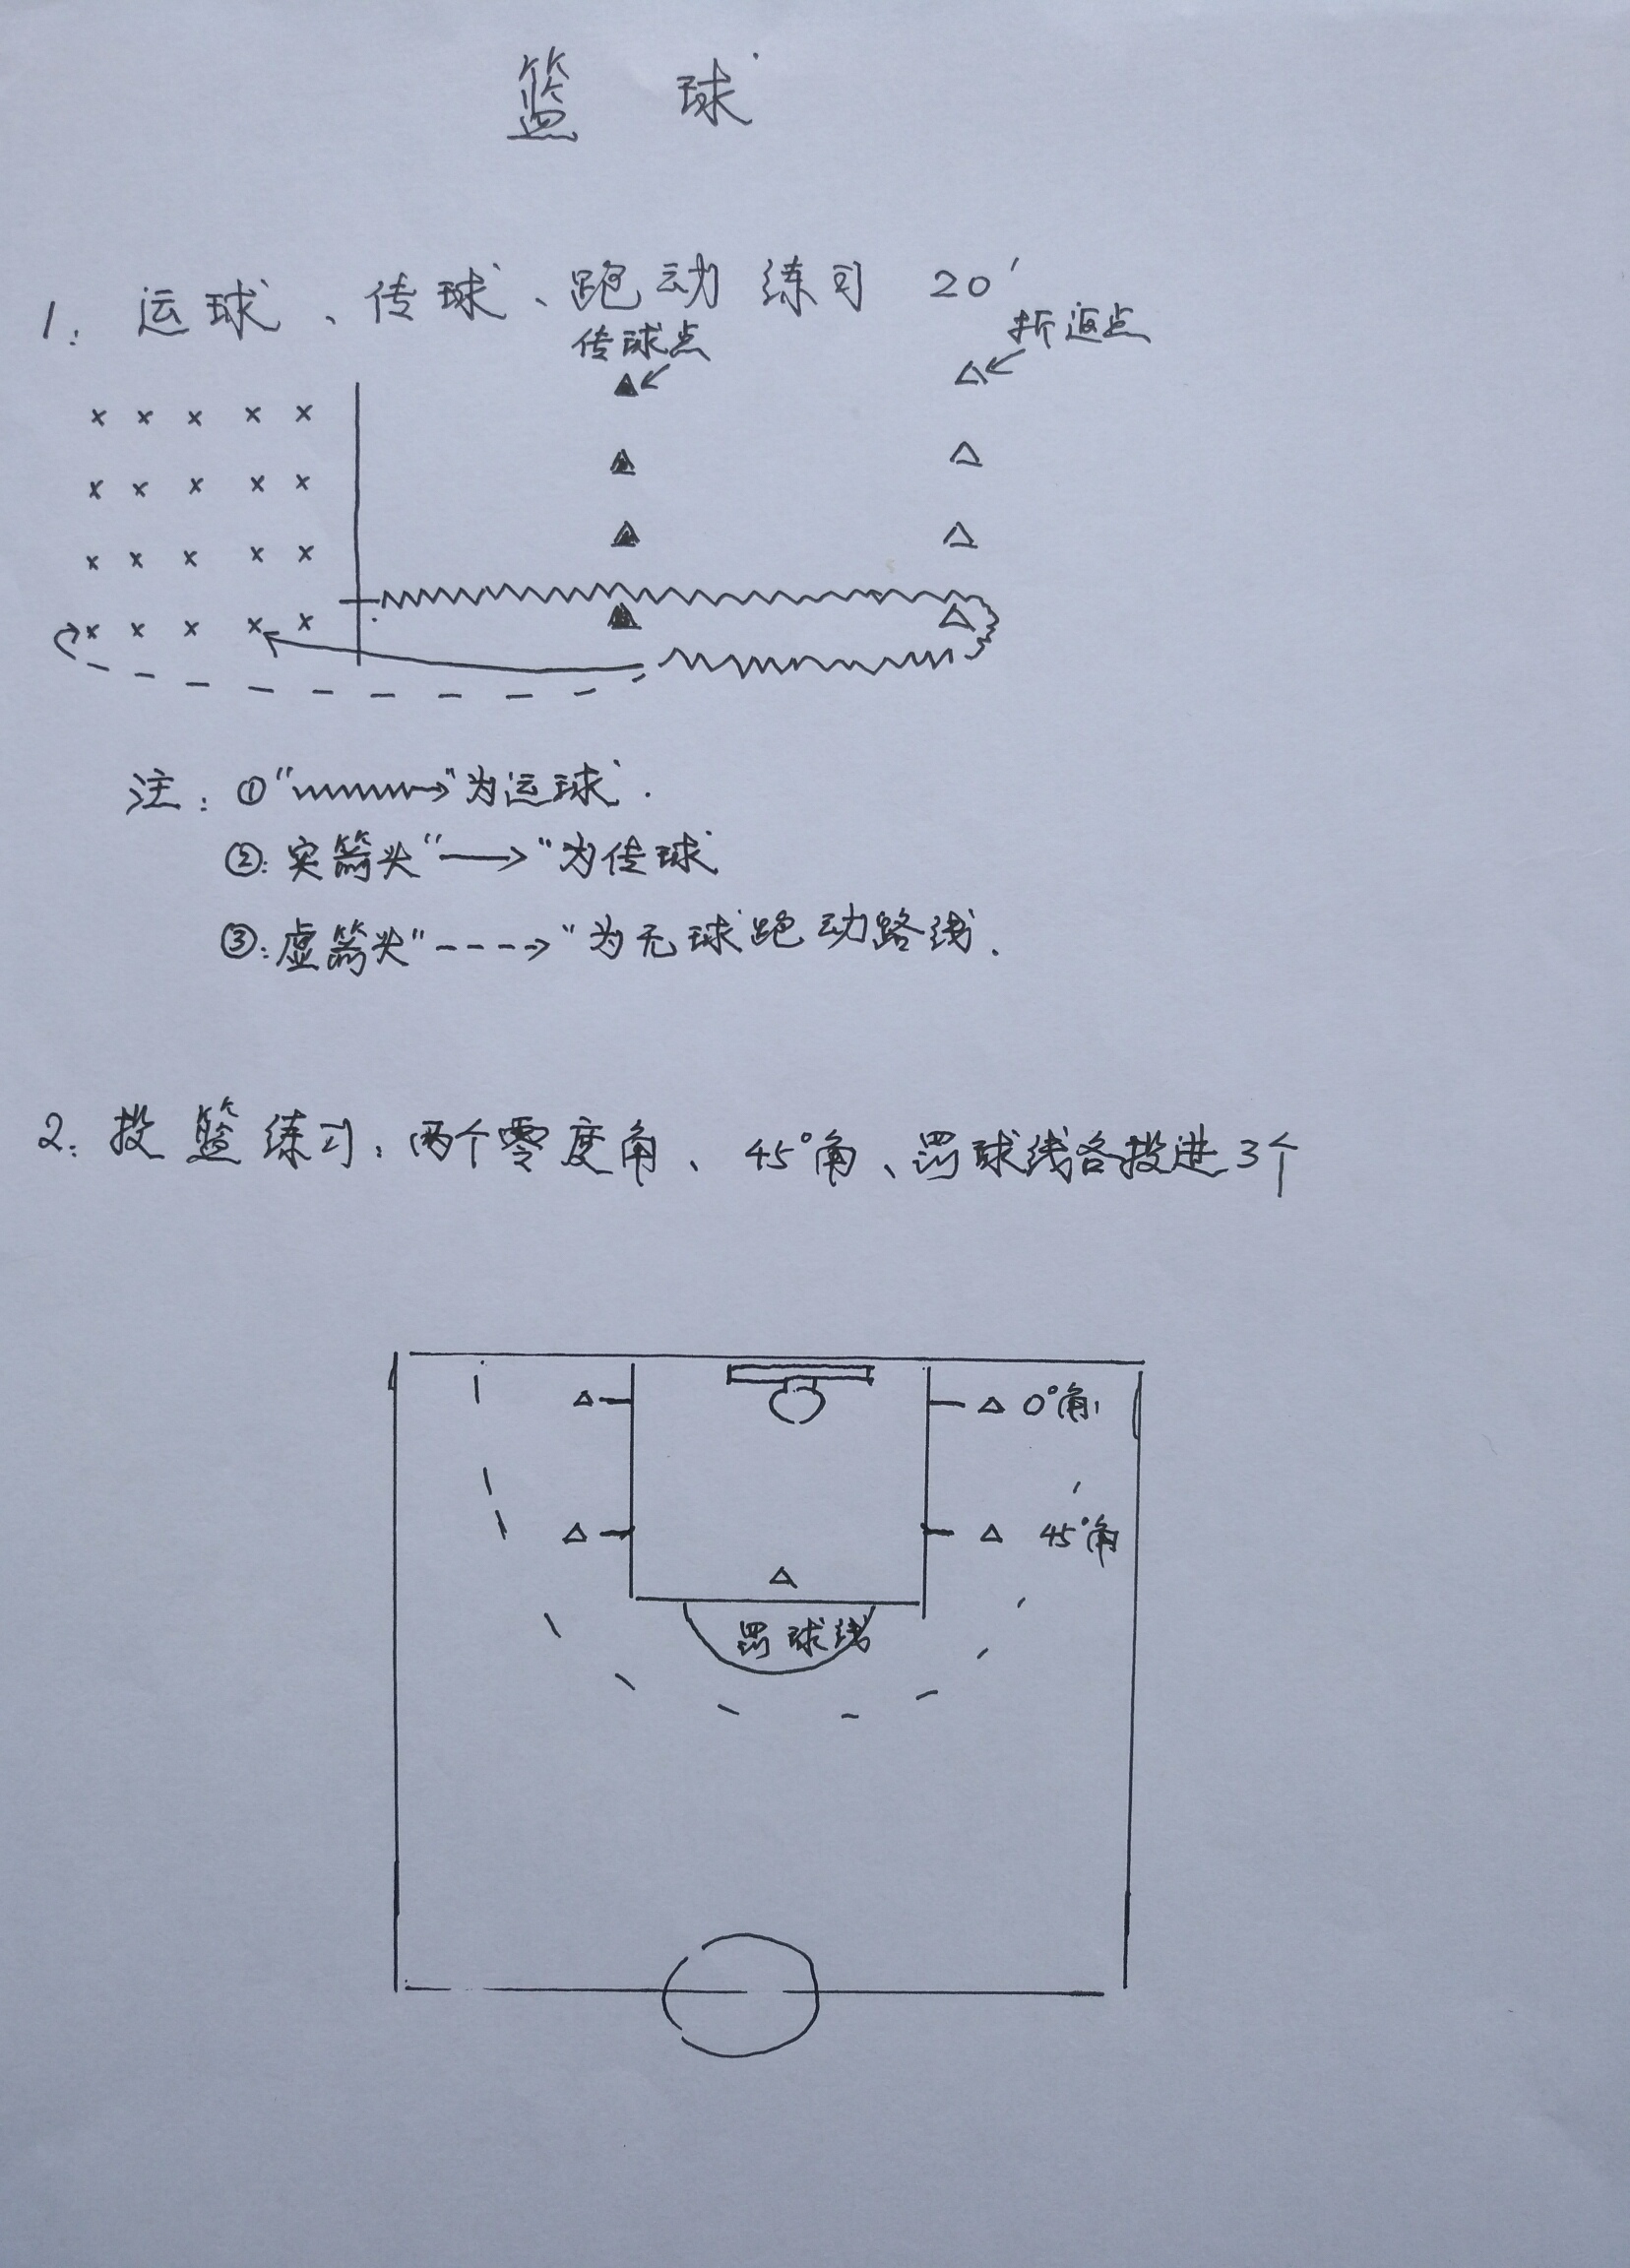 篮 球
1. 运球、传球、跑动练习 20′
传球点
折返点
注:①"→"为运球.
②:实箭头"→"为传球
③:虚箭头"---→"为无球跑动路线.
2. 投篮练习:两个零度角、45°角、罚球线各投进3个
0°角
45°角
罚球线